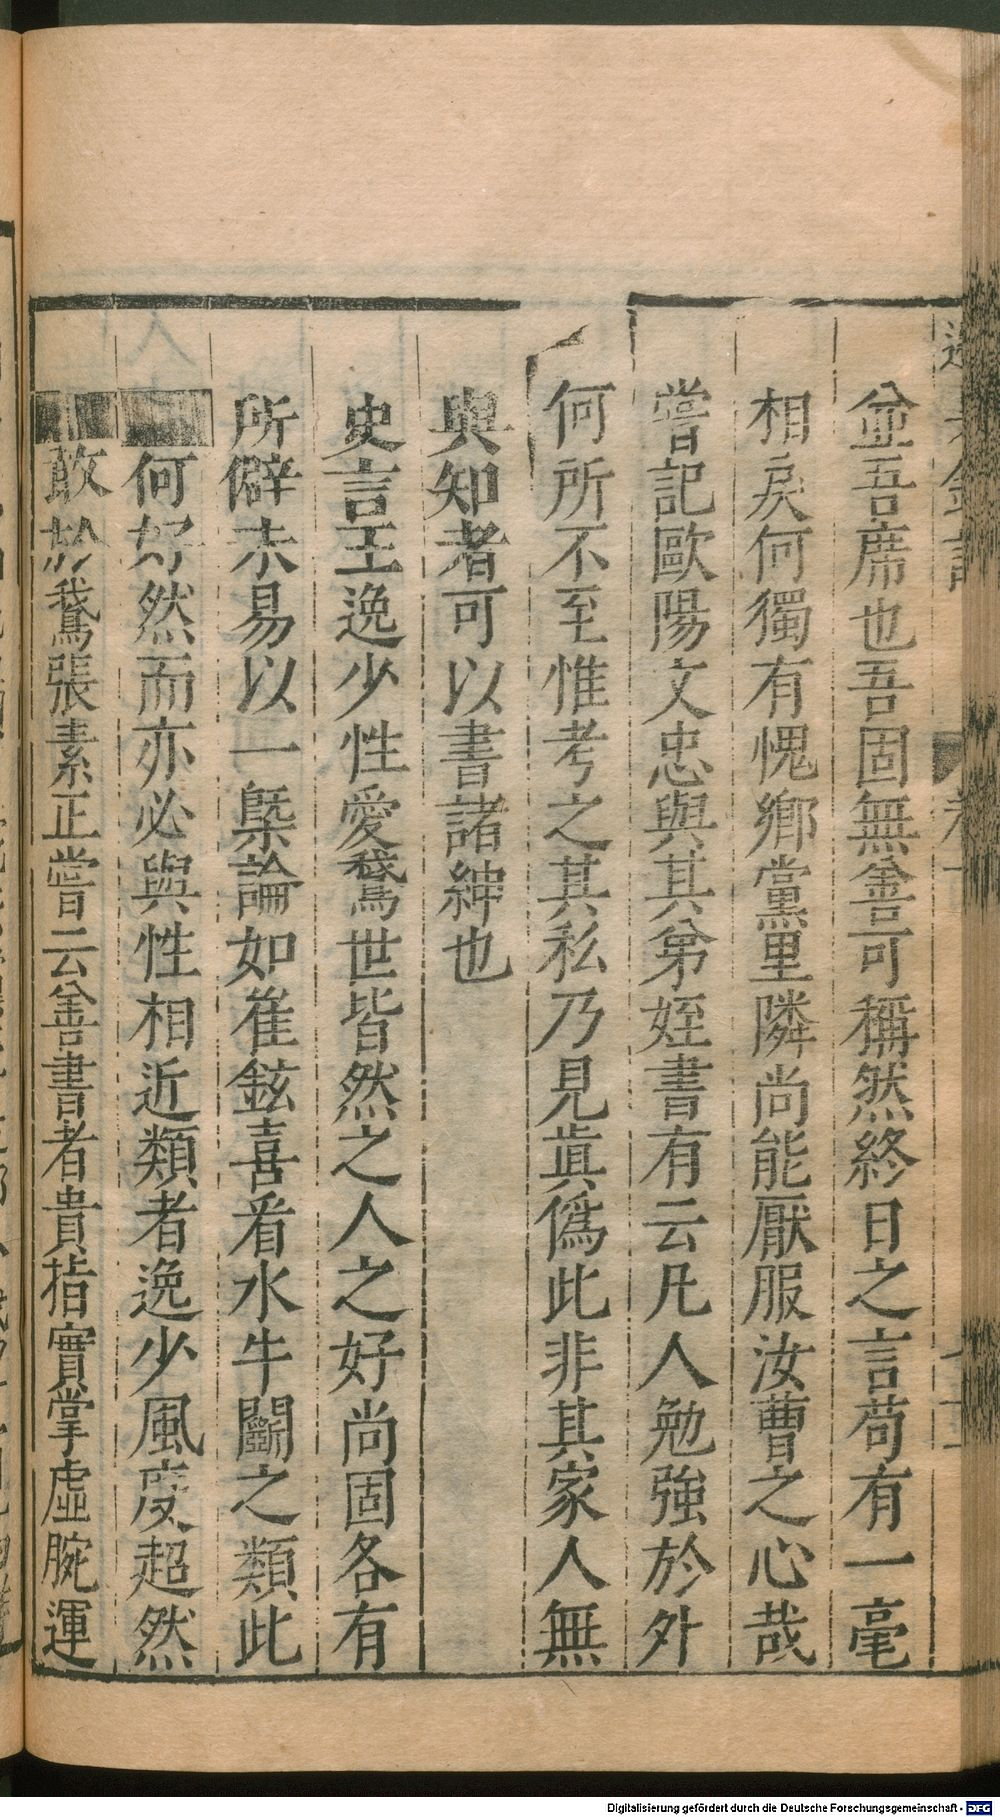 並吾席也吾固無善可稱然終日之言苟有一毫
相戾何獨有愧鄉黨里隣尚能厭服汝曹之心哉
嘗記歐陽文忠與其弟姪書有云凡人勉強於外
何所不至惟考之其私乃見眞僞此非其家人無
與知者可以書諸紳也
史言王逸少性愛鵞世皆然之人之好尚固各有
所僻未易以一槩論如崔鉉喜看水牛鬭之類此
何好然而亦必與性相近類者逸少風度超然
敢於鵞張素正嘗云善書者貴指實掌虛腕運
Digitalisierung gefördert durch die Deutsche Forschungsgemeinschaft - DFG